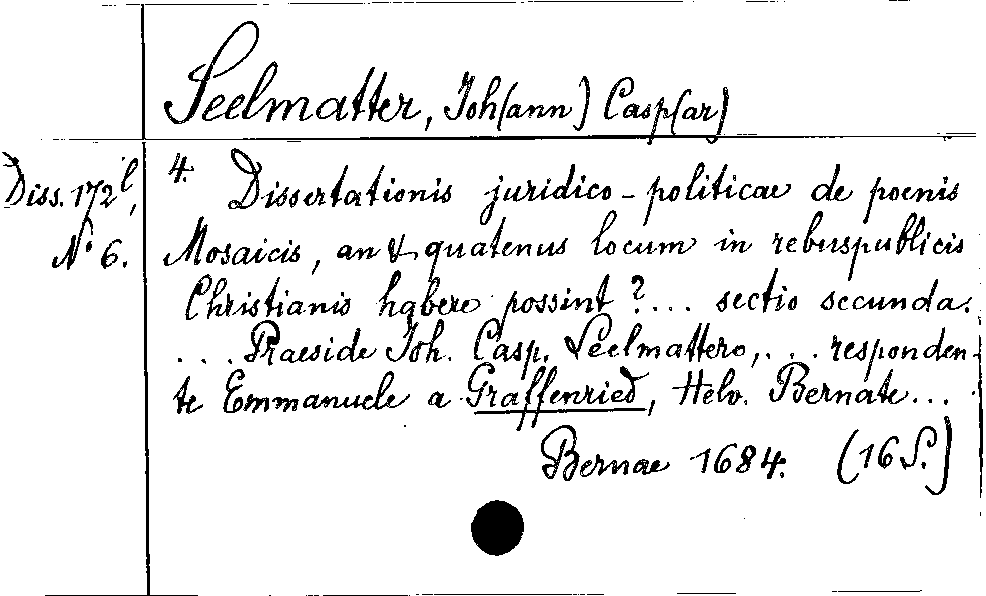 Seelmatter, Joh(ann) Casp(ar)
Diss. 172 l,
N° 6.
4. Dissertationis juridico-politicae de poenis
Mosaicis, an & quatenus locum in rebuspublicis
Christianis habere possint ?... sectio secunda.
... Praeside Joh. Casp. Seelmattero, ... responden-
te Emmanuele a Graffenried, Helv. Bernate...
Bernae 1684. (16 S.)